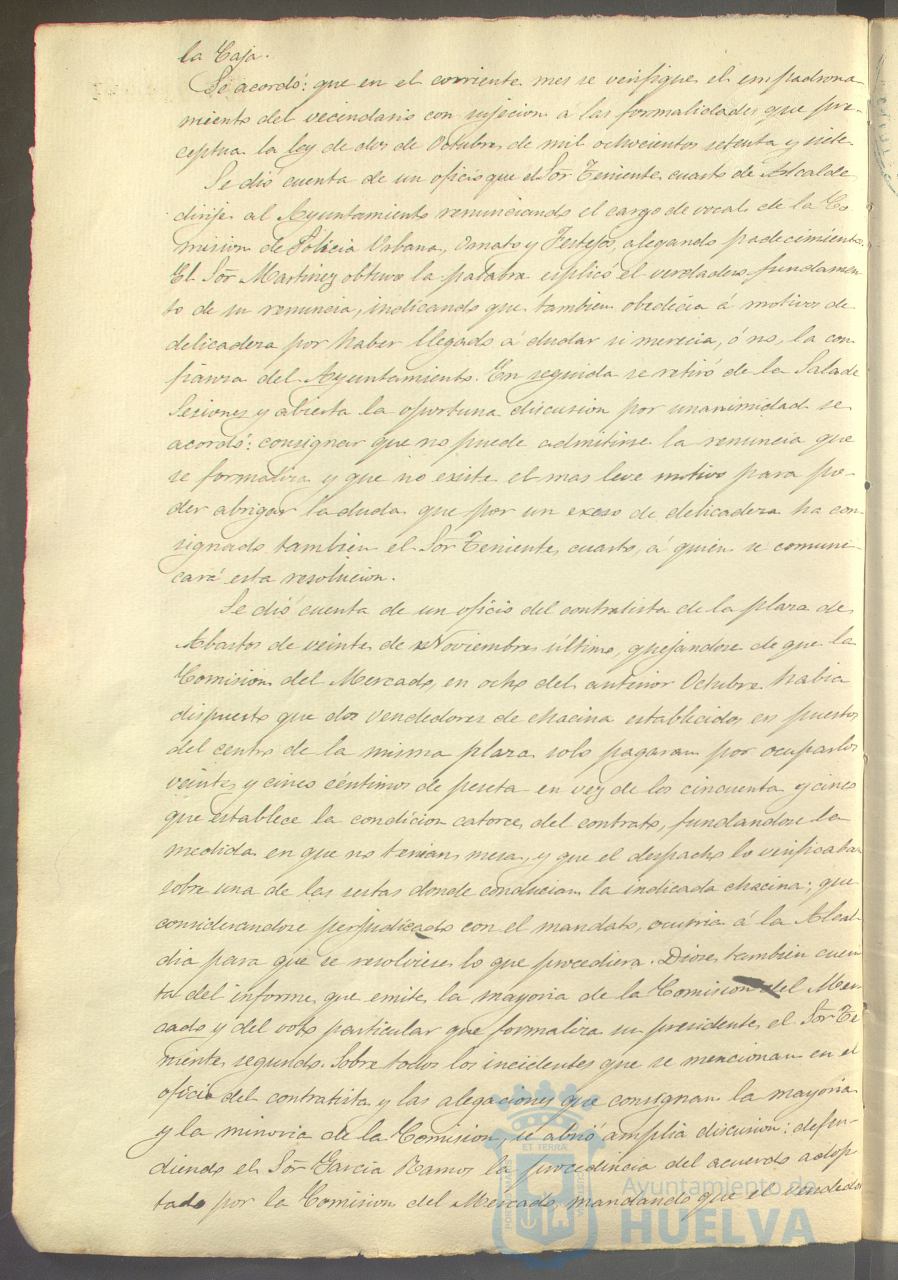 la Caja.
Se acordó: que en el corriente mes se verifique el empadrona-
miento del vecindario con sujecion á las formalidades que pre-
ceptua la ley de dos de Octubre de mil ochocientos setenta y siete.
Se dió cuenta de un oficio que el Sor Teniente cuarto de Alcalde
dirije al Ayuntamiento renunciando el cargo de vocal de la Co
mision de Policia Urbana, Ornato y Festejos, alegando padecimientos.
El Sor Martinez obtuvo la palabra esplicó el verdadero fundamen-
to de su renuncia, indicando que tambien obedecia á motivos de
delicadeza por haber llegado á dudar si merecia, ó no, la con-
fianza del Ayuntamiento. En seguida se retiró de la Sala de
Sesiones y abierta la oportuna discusion por unanimidad se
acordó: consignar que no puede admitirse la renuncia que
se formaliza y que no existe el mas leve motivo para po-
der abrigar la duda que por un exceso de delicadeza ha con-
signado tambien el Sor Teniente cuarto, á quien se comuni-
cará esta resolucion.
Se dió cuenta de un oficio del contratista de la plaza de
Abastos de veinte de Noviembre último, quejandose de que la
Comision del Mercado, en ocho del anterior Octubre habia
dispuesto que dos vendedores de chacina establecidos en puestos
del centro de la misma plaza solo pagaran por ocuparlos
veinte y cinco céntimos de peseta en vez de los cincuenta y cinco
que establece la condicion catorce del contrato, fundandose la
medida en que no tenian mesa, y que el despacho lo verificaban
sobre una de las cestas donde conducian la indicada chacina; que
considerandose perjudicado con el mandato, ocurria á la Alcal-
dia para que se resolviese lo que procediera. Diose tambien cuen-
ta del informe que emite la mayoria de la Comision del Mer-
cado y del voto particular que formaliza su presidente el Sor Te
niente segundo. Sobre todos los incidentes que se mencionan en el
oficio del contratista y las alegaciones que consignan la mayoria
y la minoria de la Comision, se abrió amplia discusion: defen-
diendo el Sor Garcia Ramos la procedencia del acuerdo adop
tado por la Comision del Mercado, mandando que el vendedor
Ayuntamiento de
HUELVA